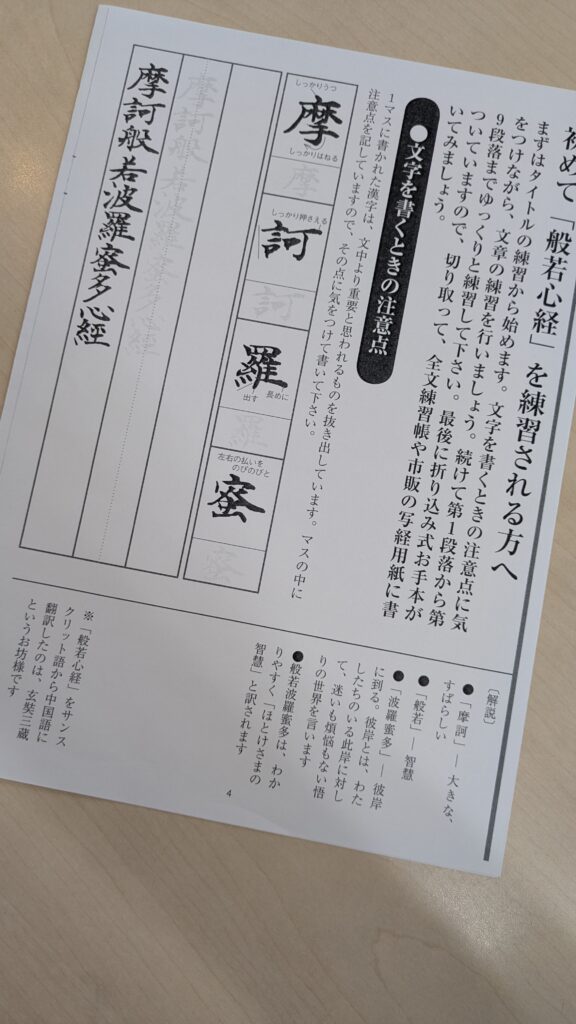 初めて「般若心経」を練習される方へ
まずはタイトルの練習から始めます。文字を書くときの注意点に気
をつけながら、文章の練習を行いましょう。続けて第1段落から第
9段落までゆっくりと練習して下さい。最後に折り込み式お手本が
ついていますので、切り取って、全文練習帳や市販の写経用紙に書
いてみましょう。
●文字を書くときの注意点
1マスに書かれた漢字は、文中より重要と思われるものを抜き出しています。マスの中に
注意点を記していますので、その点に気をつけて書いて下さい。
しっかりうつ
摩
しっかりはねる
摩
しっかり押さえる
訶
訶
羅
長めに
出す
羅
左右の払いを
のびのびと
蜜
蜜
摩訶般若波羅蜜多心経
摩訶般若波羅蜜多心経
〔解説〕
●「摩訶」― 大きな、
すばらしい
●「般若」― 智慧
●「波羅蜜多」― 彼岸
に到る。彼岸とは、わた
したちのいる此岸に対し
て、迷いも煩悩もない悟
りの世界を言います
●般若波羅蜜多は、わか
りやすく「ほとけさまの
智慧」と訳されます
※「般若心経」をサンス
クリット語から中国語に
翻訳したのは、玄奘三蔵
というお坊様です
4